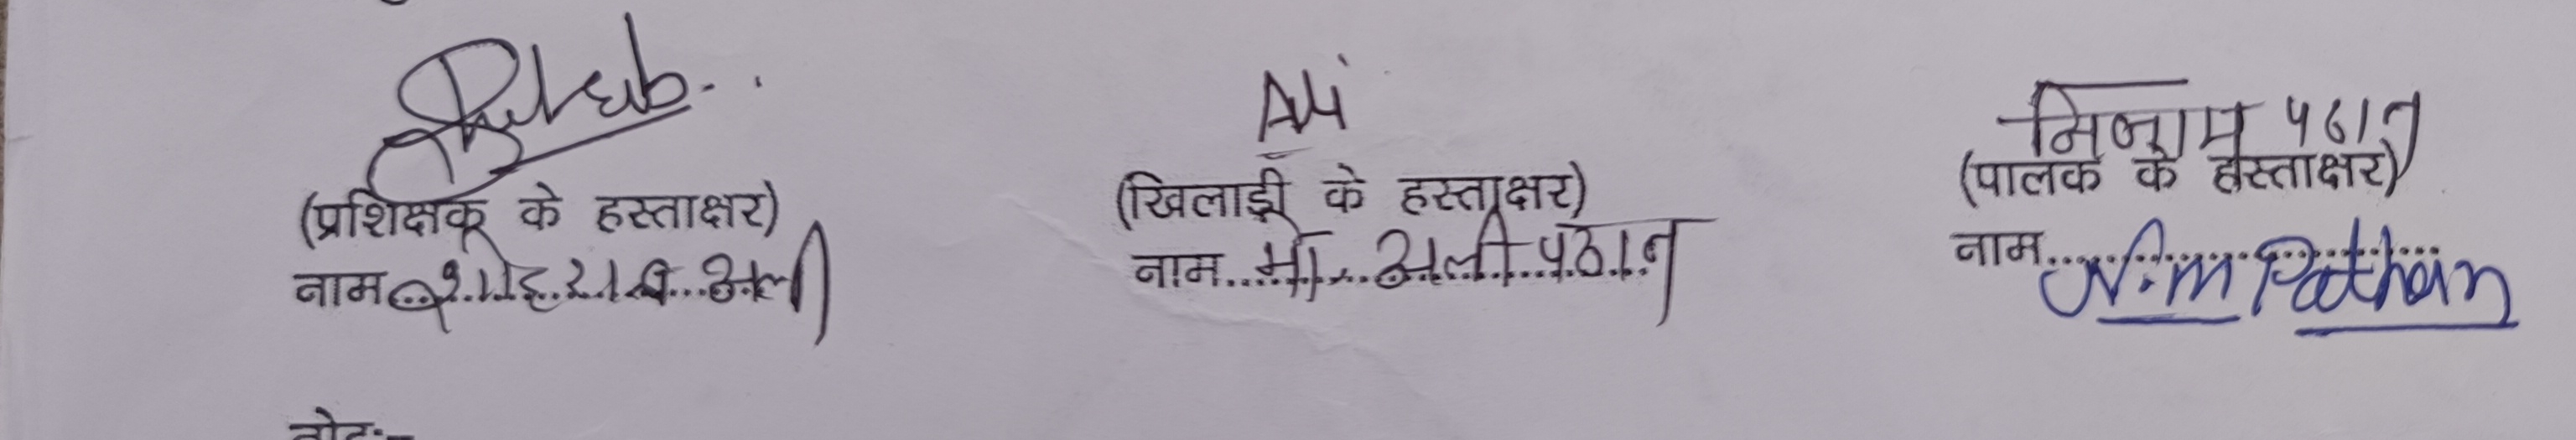 Ali
निजाम पठान
(प्रशिक्षक के हस्ताक्षर) (खिलाड़ी के हस्ताक्षर) (पालक के हस्ताक्षर)
नाम शोहराब अली नाम..मो...अली पठान नाम.. N.m Pathan
नोट:-